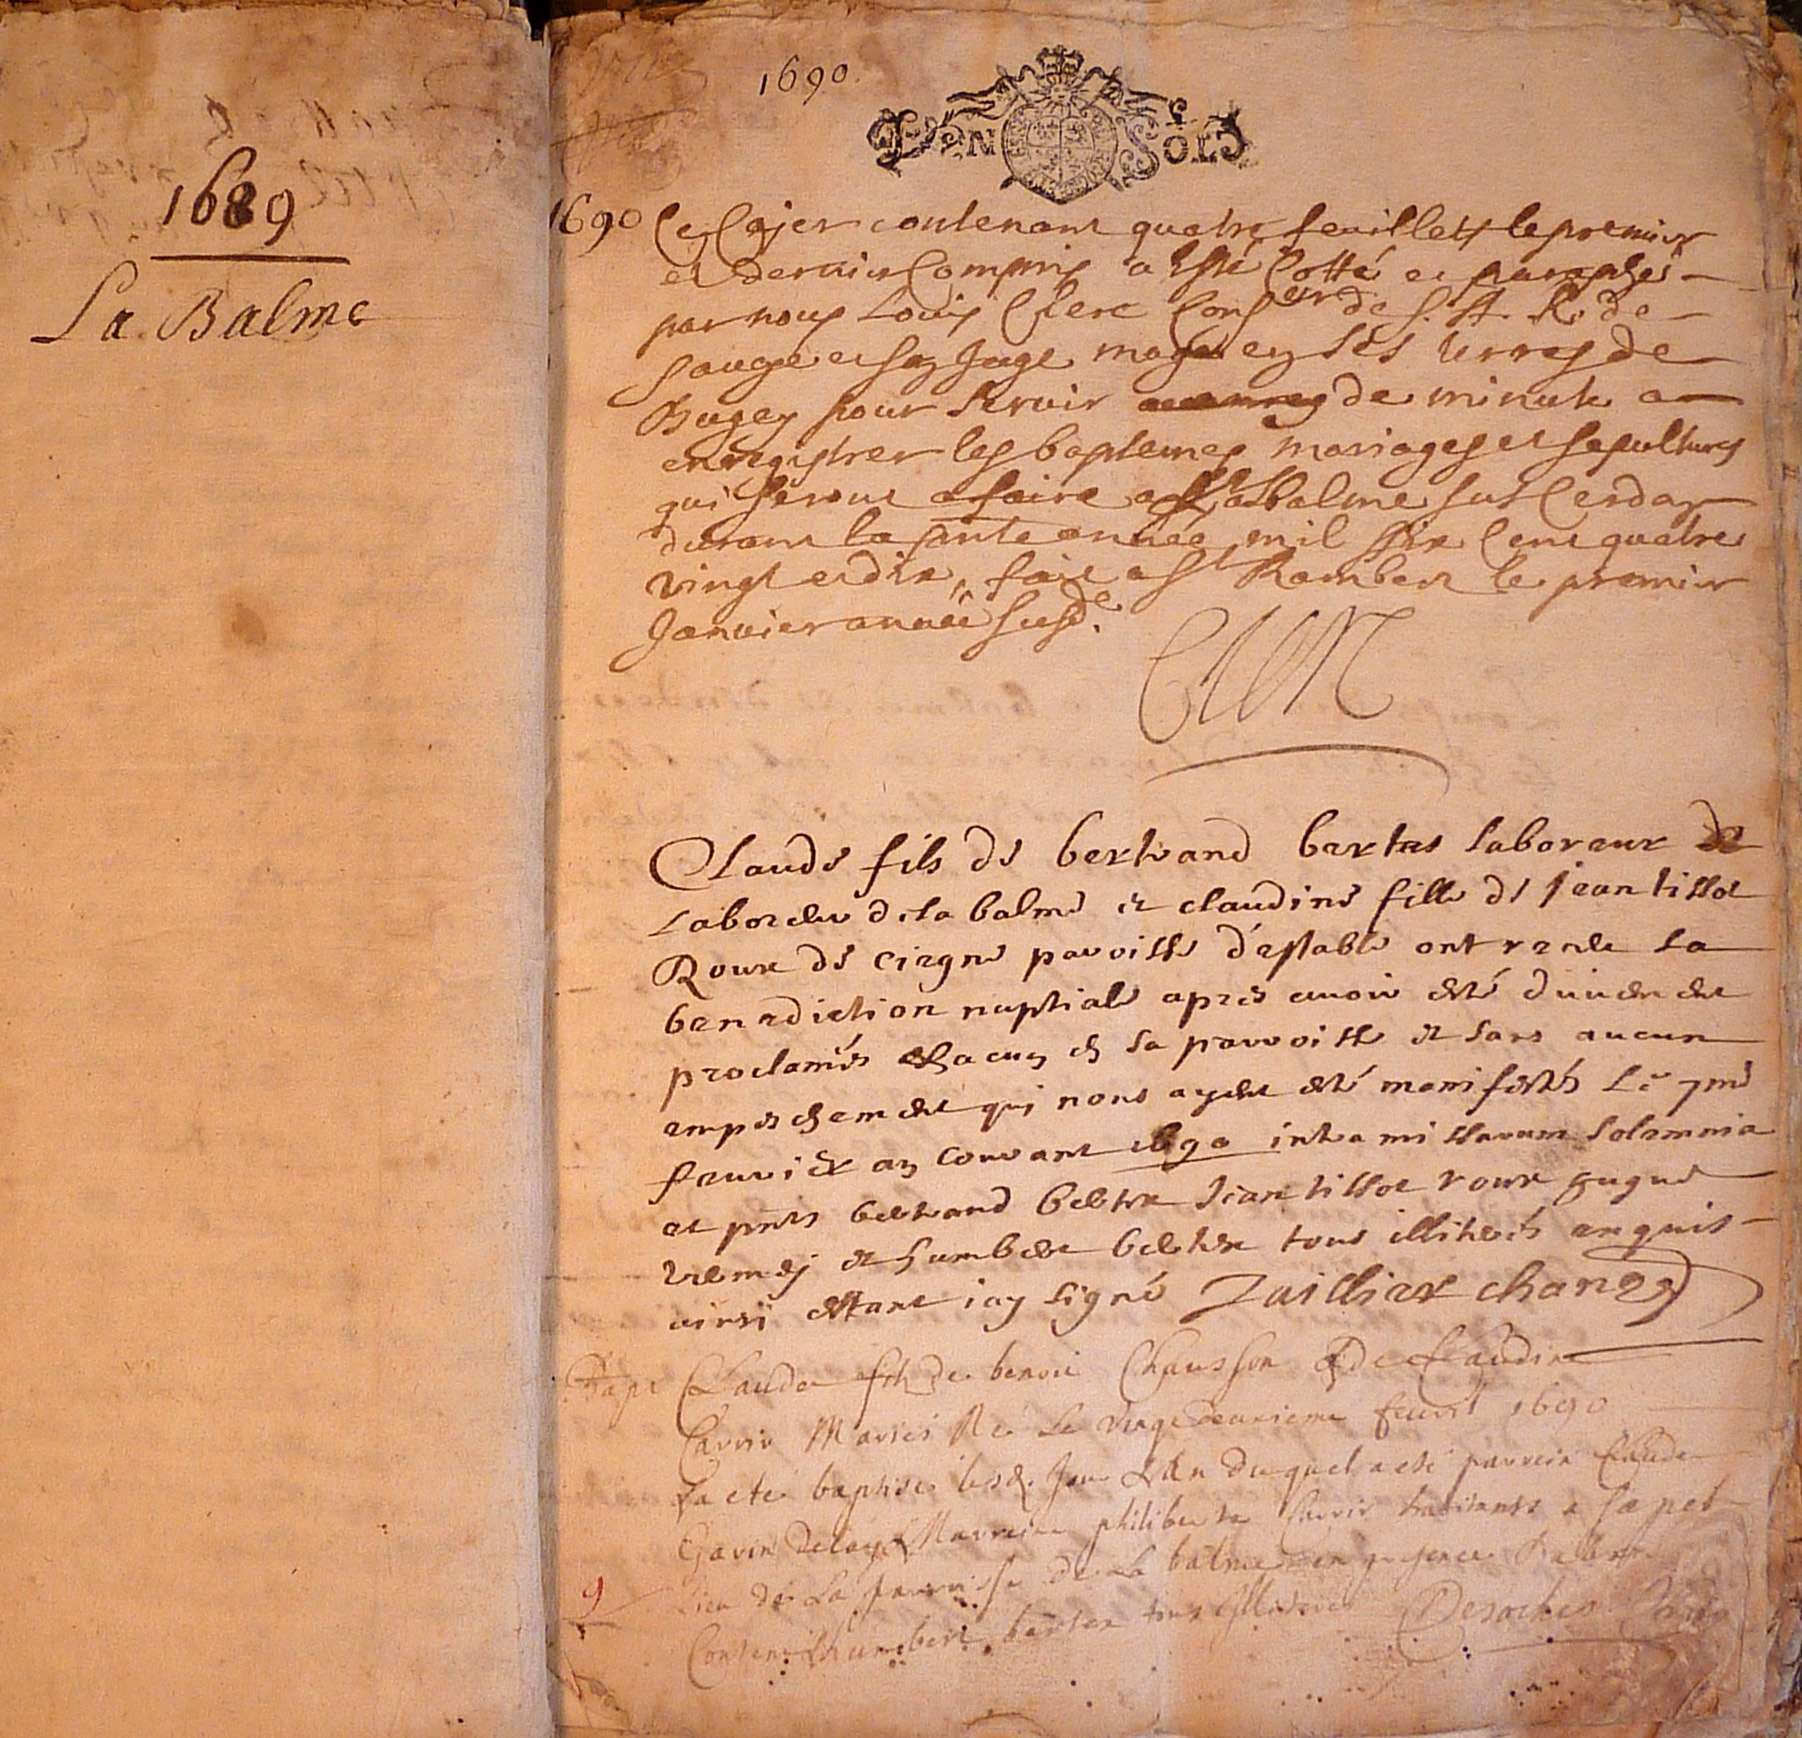 1689
La Balme
1690
DEUX SOLS
1690 Ce Cajer contenant quatre feuillets le premier
et dernier Compris a esté Cotté et paraphé
par nous Louis Clerc Conser de S. A. R. de
Savoye et son Juge maje en ses terres de
Bugey pour servir de minute a
enregistrer les baptemes mariages et sepultures
qui seront a faire a La balme sur Cerdon
durant la pnte année mil six cent quatre
vingt et dix, fait a St Rambert le premier
Janvier année susde.
Clerc
Claude fils de bertrand bertet laboreur de
Laboreur de la balme et claudine fille de Jean tissot
Roux de ciegne paroisse d'estable ont receu la
benediction nuptiale apres avoir esté duement
proclamés chacun en sa parroisse et sans aucun
empeschement qui nous ayent esté manifestés Le 7me
feuvrier an courant 1690 intra missarum solemnia
et pnts bertrand Jean tissot roux hugue
et humbert tous illiterés enquis
ainsi estant iay signé
Bapt Claude fils de benoit Chausson & de Claudine
Carrir Mariés Né Le vingt deuxieme feuvr 1690
Et a eté baptisé lesd. Jour & An duquel a esté parrein Claude
& Marreine philiberte Carrir habitants a
lieu de La parroisse de La balme en presence de
humbert tous illiterés Desroches
9